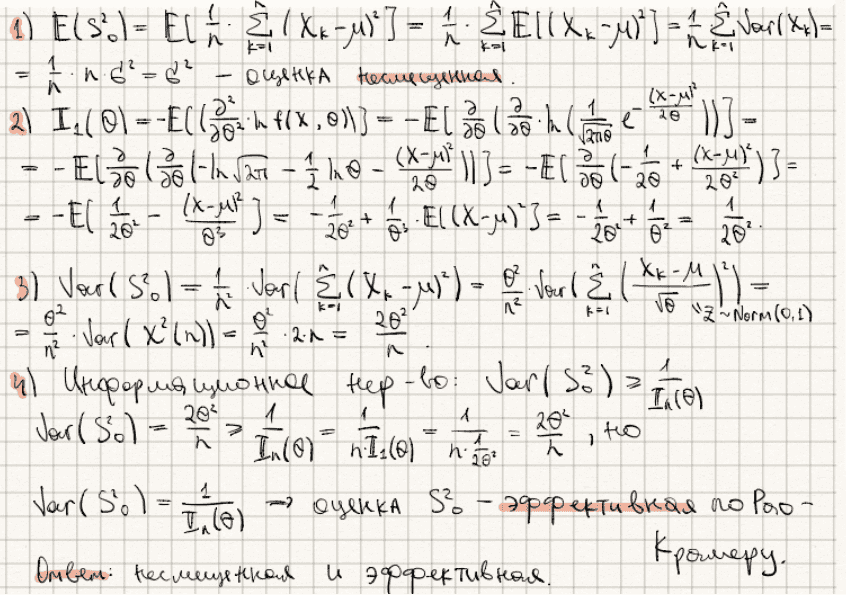 1) E(S₀²) = E[1/n · Σₖ₌₁ⁿ (Xₖ-μ)²] = 1/n · Σₖ₌₁ⁿ E[(Xₖ-μ)²] = 1/n · Σₖ₌₁ⁿ Var(Xₖ) =
= 1/n · n · σ² = σ² – оценка несмещенная.
2) I₁(θ) = -E[(∂²/∂θ² · ln f(X, θ))] = -E[∂/∂θ (∂/∂θ · ln (1/√(2πθ) e^(-(X-μ)²/2θ)))] =
= -E[∂/∂θ (∂/∂θ (-ln √2π - 1/2 ln θ - (X-μ)²/2θ))] = -E[∂/∂θ (-1/2θ + (X-μ)²/2θ²)] =
= -E[1/2θ² - (X-μ)²/θ³] = -1/2θ² + 1/θ³ · E[(X-μ)²] = -1/2θ² + 1/θ² = 1/2θ².
3) Var(S₀²) = 1/n² · Var(Σₖ₌₁ⁿ (Xₖ-μ)²) = θ²/n² · Var(Σₖ₌₁ⁿ ((Xₖ-μ)/√θ)²) =
"Z ~ Norm(0,1)
= θ²/n² · Var(χ²(n)) = θ²/n² · 2·n = 2θ²/n.
4) Информационное нер-во: Var(S₀²) ≥ 1/Iₙ(θ)
Var(S₀²) = 2θ²/n ≥ 1/Iₙ(θ) = 1/(n·I₁(θ)) = 1/(n · 1/2θ²) = 2θ²/n, но
Var(S₀²) = 1/Iₙ(θ) → оценка S₀² – эффективная по Рао-
Крамеру.
Ответ: несмещенная и эффективная.